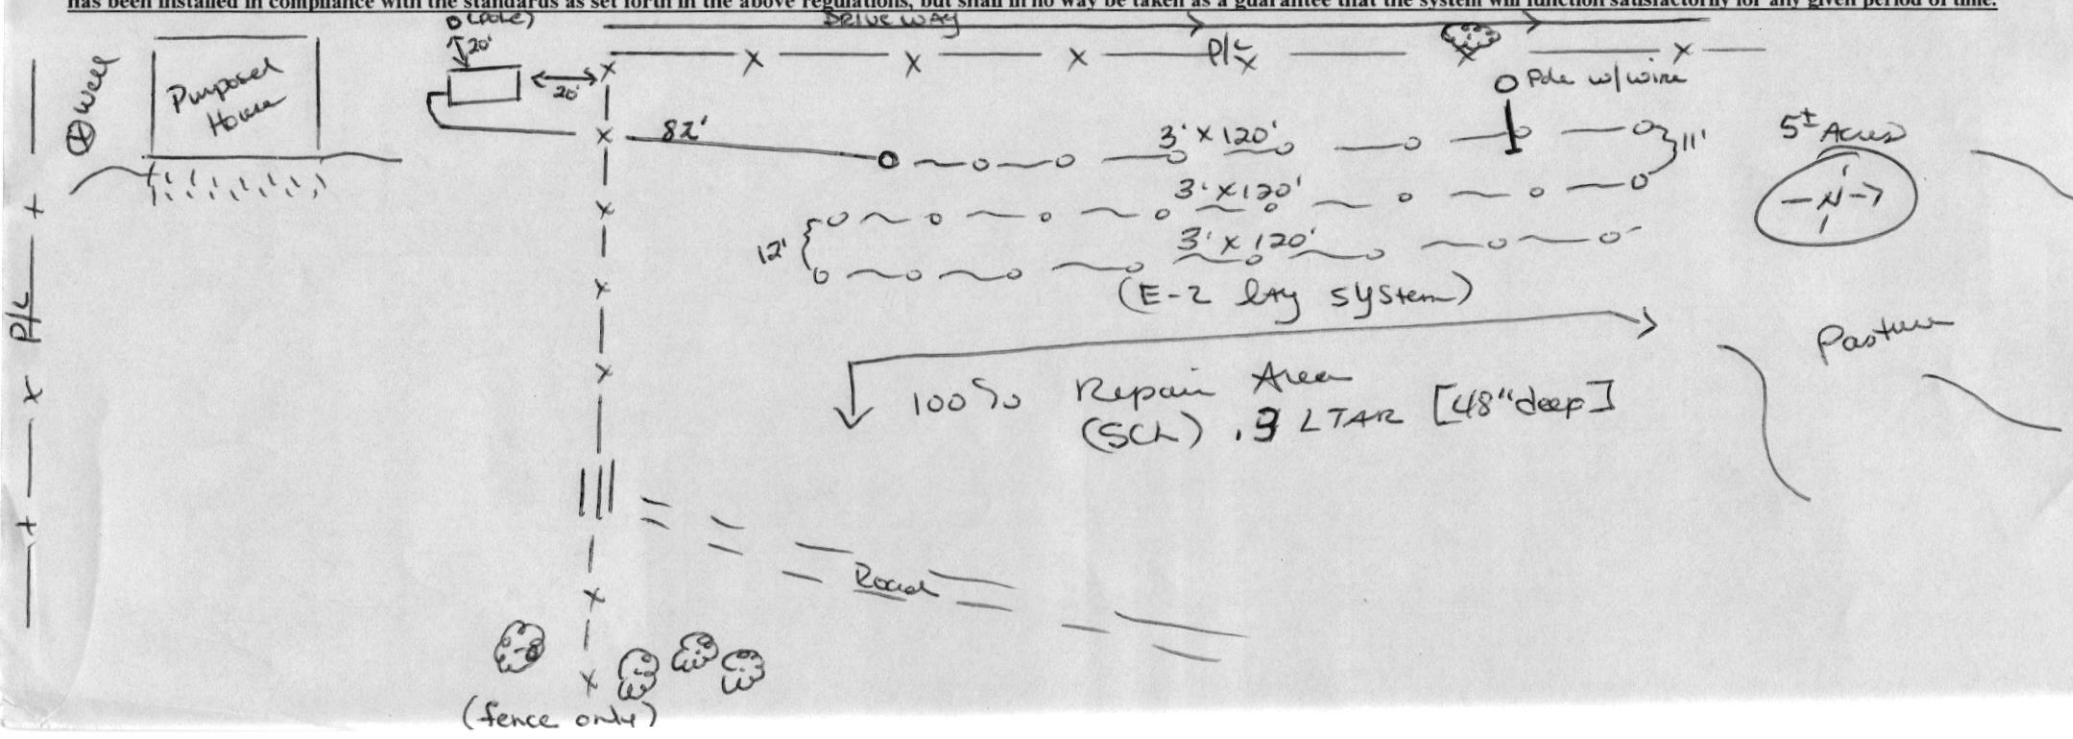 has been installed in compliance with the standards as set forth in the above regulations, but shall in no way be taken as a guarantee that the system will function satisfactorily for any given period of time.
(pole)
DRIVEWAY
20'
P/L
well
Purposed
House
20'
Pole w/wire
82'
3' x 120'
11'
5± Acres
3' x 120'
N
12'
3' x 120'
(E-Z lay system)
P/L
Pasture
100% Repair Area
(SCL) .3 LTAR [48" deep]
Road
(fence only)